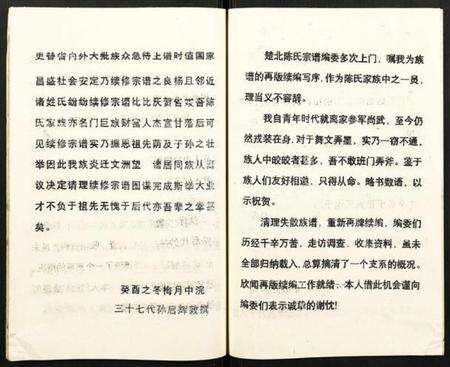 更替省内外大批族众急待上谱时值国家
昌盛社会安定乃续修宗谱之良杨且邻近
诸姓氏纷纷续修宗谱比比庆贺省竣吾陈
氏家族亦名门巨族财富人杰宣甘落后可
见续修宗谱实乃振思祖先荫及子孙之壮
举因此我族炎迁文洲望 谱居同族从商
议决定清理续修宗谱图谋完成斯举大业
才不负于祖先无愧于后代亦吾辈之掌甚
矣。
癸酉之冬梅月中浣
三十七代孙启辉敦撰
楚北陈氏宗谱编委多次上门，嘱我为族
谱的再版续编写序，作为陈氏家族中之一员，
理当义不容辞。
我自青年时代就离家参军尚武，至今仍
然戎装在身，对于舞文弄墨，实乃一窍不通，
族人中皎皎者甚多，吾不敢班门弄斧。鉴于
族人们友好相邀，只得从命。略书数语，以
示祝贺。
清理失散族谱，重新再牌续编，编委们
历经千辛万苦，走访调查，收集资料，虽未
全部归纳载入，总算搞清了一个支系的概况。
欣闻再版续编工作就绪，本人借此机会谨向
编委们表示诚挚的谢忱！